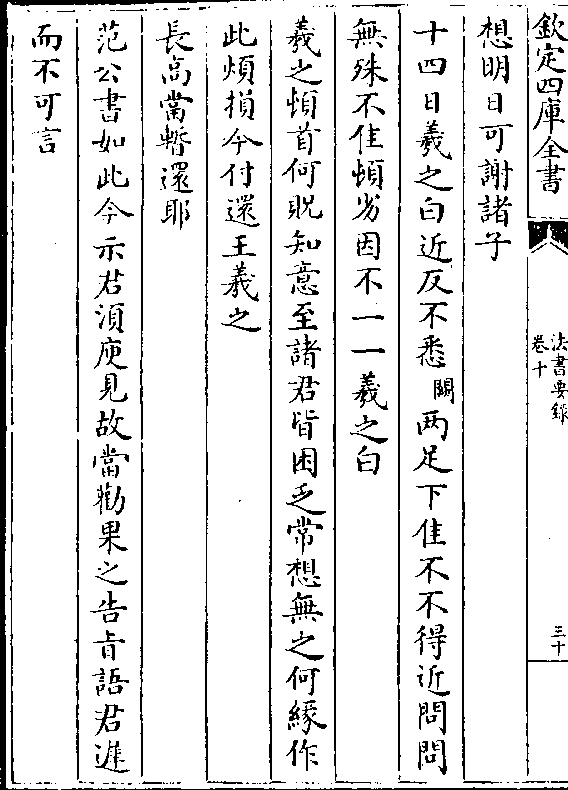 欽定四庫全書
法書要錄
卷十
三十
想明日可謝諸子
十四日羲之白近反不悉闕两足下佳不不得近問問
無殊不佳頓劣因不一一羲之白
羲之頓首何貺知意至諸君皆困乏常想無之何緣作
此煩損今付還王羲之
長高當暫還耶
范公書如此今示君須庾見故當勸果之告㫖語君進
而不可言